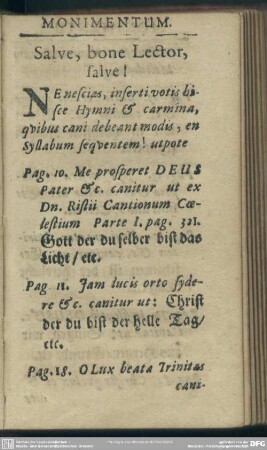 MONIMENTUM.
Salve, bone Lector,
salve!
NE nescias, inserti votis hi-
sce Hymni & carmina,
qvibus cani debeant modis, en
Syllabum seqventem! utpote
Pag. 10. Me prosperet DEUS
Pater &c. canitur ut ex
Dn. Ristii Cantionum Cœ-
lestium Parte I. pag. 321.
Gott der du selber bist das
Licht/ etc.
Pag 11. Jam lucis orto syde-
re &c. canitur ut: Christ
der du bist der helle Tag/
etc.
Pag. 18. O Lux beata Trinitas
cani-
DFG